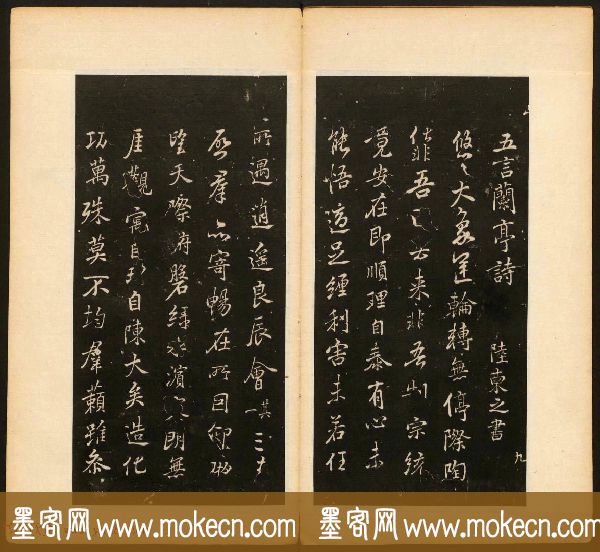 五言蘭亭詩 陸柬之書
九
悠々大象運輪轉無停際陶
化非吾因去來非吾制宗統
竟安在即順理自泰有心未
能悟適足纏利害未若任
所遇逍遙良辰會 其一 三春
啓羣品寄暢在所因仰眺
望天際俯磐綠水濱寥朗無
厓觀寓目理自陳大矣造化
功萬殊莫不均羣籟雖參
墨客网 www.mokecn.com 墨客网 www.mokecn.com